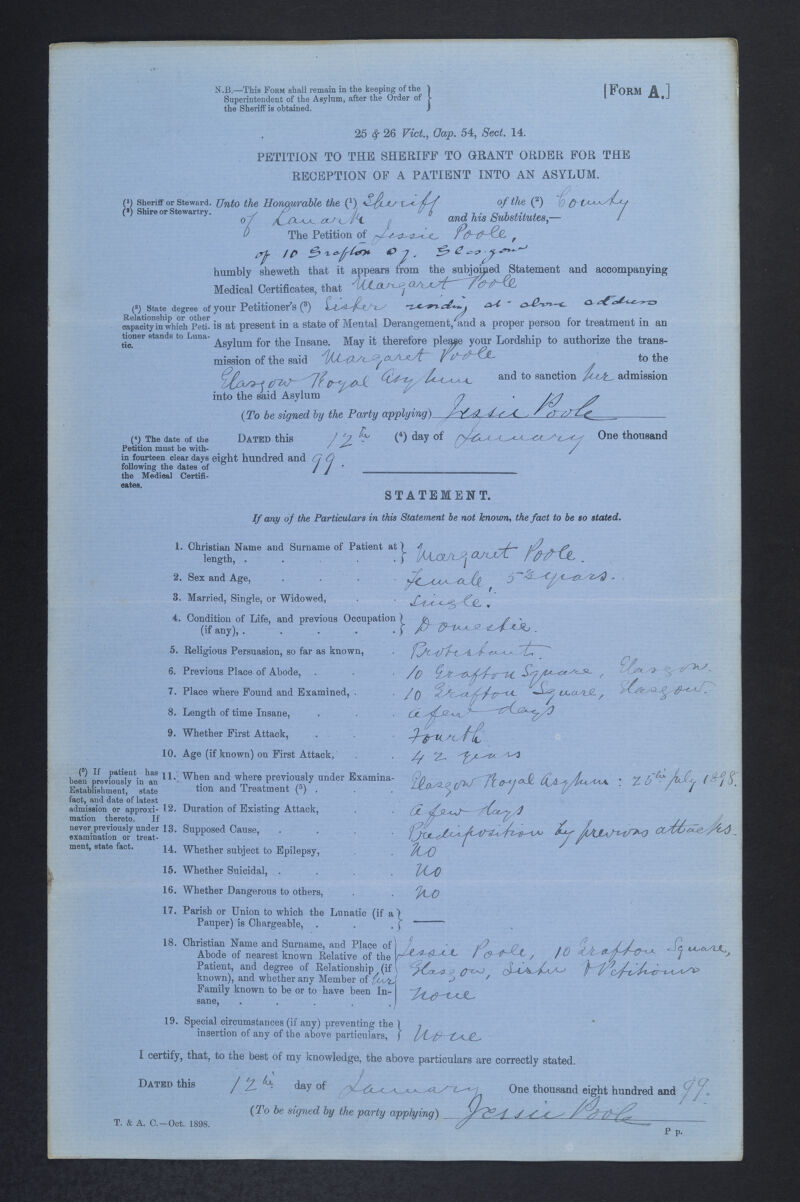 N.B.—This Form shall remain in the keeping of the
Superintendent of the Asylum, after the Order of
the Sheriff is obtained.
[Form A.]
25 & 26 Vict., Cap. 54, Sect. 14.
PETITION TO THE SHERIFF TO GRANT ORDER FOR THE
RECEPTION OF A PATIENT INTO AN ASYLUM.
(¹) Sheriff or Steward.
(²) Shire or Stewartry.
Unto the Honourable the (¹) Sheriff of the (²) County
of Lanark and his Substitutes,—
The Petition of Jessie Poole,
of 10 Grafton Sq. Glasgow
humbly sheweth that it appears from the subjoined Statement and accompanying
Medical Certificates, that Margaret Poole
(³) State degree of
Relationship or other
capacity in which Peti-
tioner stands to Luna-
tic.
your Petitioner's (³) Sister residing at above address
is at present in a state of Mental Derangement, and a proper person for treatment in an
Asylum for the Insane. May it therefore please your Lordship to authorize the trans-
mission of the said Margaret Poole to the
Glasgow Royal Asylum and to sanction her admission
into the said Asylum
(To be signed by the Party applying) Jessie Poole
(⁴) The date of the
Petition must be with-
in fourteen clear days
following the dates of
the Medical Certifi-
cates.
Dated this 12th (⁴) day of January One thousand
eight hundred and 99.
STATEMENT.
If any of the Particulars in this Statement be not known, the fact to be so stated.
1. Christian Name and Surname of Patient at
length, . . . . . Margaret Poole.
2. Sex and Age, . . . Female, 52 years.
3. Married, Single, or Widowed, . . Single.
4. Condition of Life, and previous Occupation
(if any), . . . . . Domestic.
5. Religious Persuasion, so far as known, . Protestant.
6. Previous Place of Abode, . . . 10 Grafton Square, Glasgow.
7. Place where Found and Examined, . . 10 Grafton Square, Glasgow.
8. Length of time Insane, . . . a few days
9. Whether First Attack, . . . Fourth
10. Age (if known) on First Attack, . . 42 years
(⁵) If patient has
been previously in an
Establishment, state
fact, and date of latest
admission or approxi-
mation thereto. If
never previously under
examination or treat-
ment, state fact.
11. When and where previously under Examina-
tion and Treatment (⁵) . . . Glasgow Royal Asylum : 25th July 1898.
12. Duration of Existing Attack, . . a few days
13. Supposed Cause, . . . . Predisposition by previous attacks.
14. Whether subject to Epilepsy, . . No
15. Whether Suicidal, . . . . No
16. Whether Dangerous to others, . . No
17. Parish or Union to which the Lunatic (if a
Pauper) is Chargeable, . . . —
18. Christian Name and Surname, and Place of
Abode of nearest known Relative of the
Patient, and degree of Relationship (if
known), and whether any Member of her
Family known to be or to have been In-
sane, . . . . .
Jessie Poole, 10 Grafton Square,
Glasgow, Sister & Petitioner
None
19. Special circumstances (if any) preventing the
insertion of any of the above particulars, None
I certify, that, to the best of my knowledge, the above particulars are correctly stated.
Dated this 12th day of January One thousand eight hundred and 99.
(To be signed by the party applying) Jessie Poole
T. & A. C.—Oct. 1898.
P p.